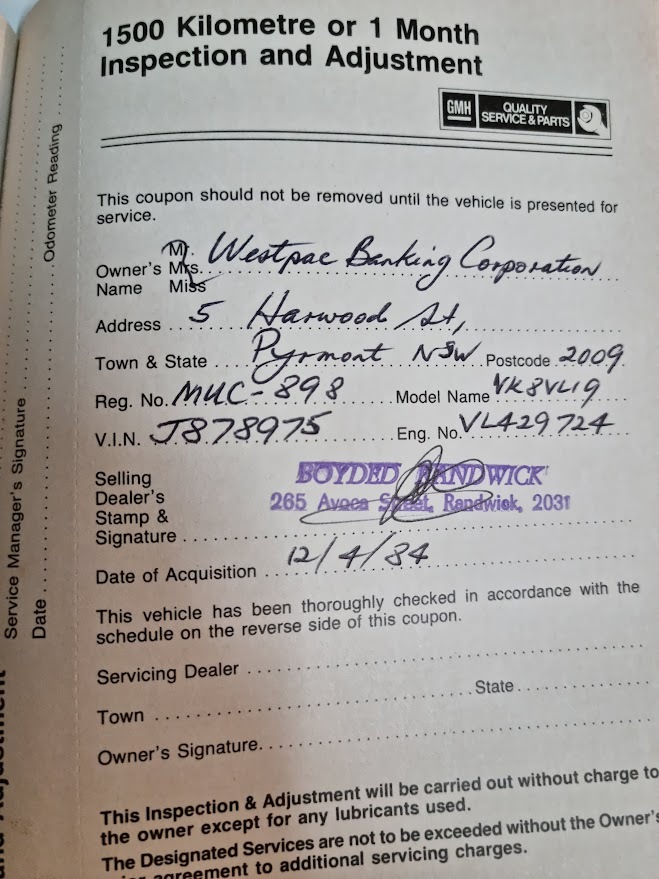 1500 Kilometre or 1 Month
Inspection and Adjustment
GMH QUALITY
SERVICE & PARTS
This coupon should not be removed until the vehicle is presented for
service.
Owner's Mr. Westpac Banking Corporation
Mrs.
Name Miss
Address 5 Harwood St,
Town & State Pyrmont NSW Postcode 2009
Reg. No. MUC-898 Model Name VK8VL19
V.I.N. J878975 Eng. No. VL429724
Selling BOYDED RANDWICK
Dealer's 265 Avoca Street, Randwick, 2031
Stamp &
Signature
Date of Acquisition 12/4/84
This vehicle has been thoroughly checked in accordance with the
schedule on the reverse side of this coupon.
Servicing Dealer
Town State
Owner's Signature
This Inspection & Adjustment will be carried out without charge to
the owner except for any lubricants used.
The Designated Services are not to be exceeded without the Owner's
agreement to additional servicing charges.
Service Manager's Signature
Date Odometer Reading